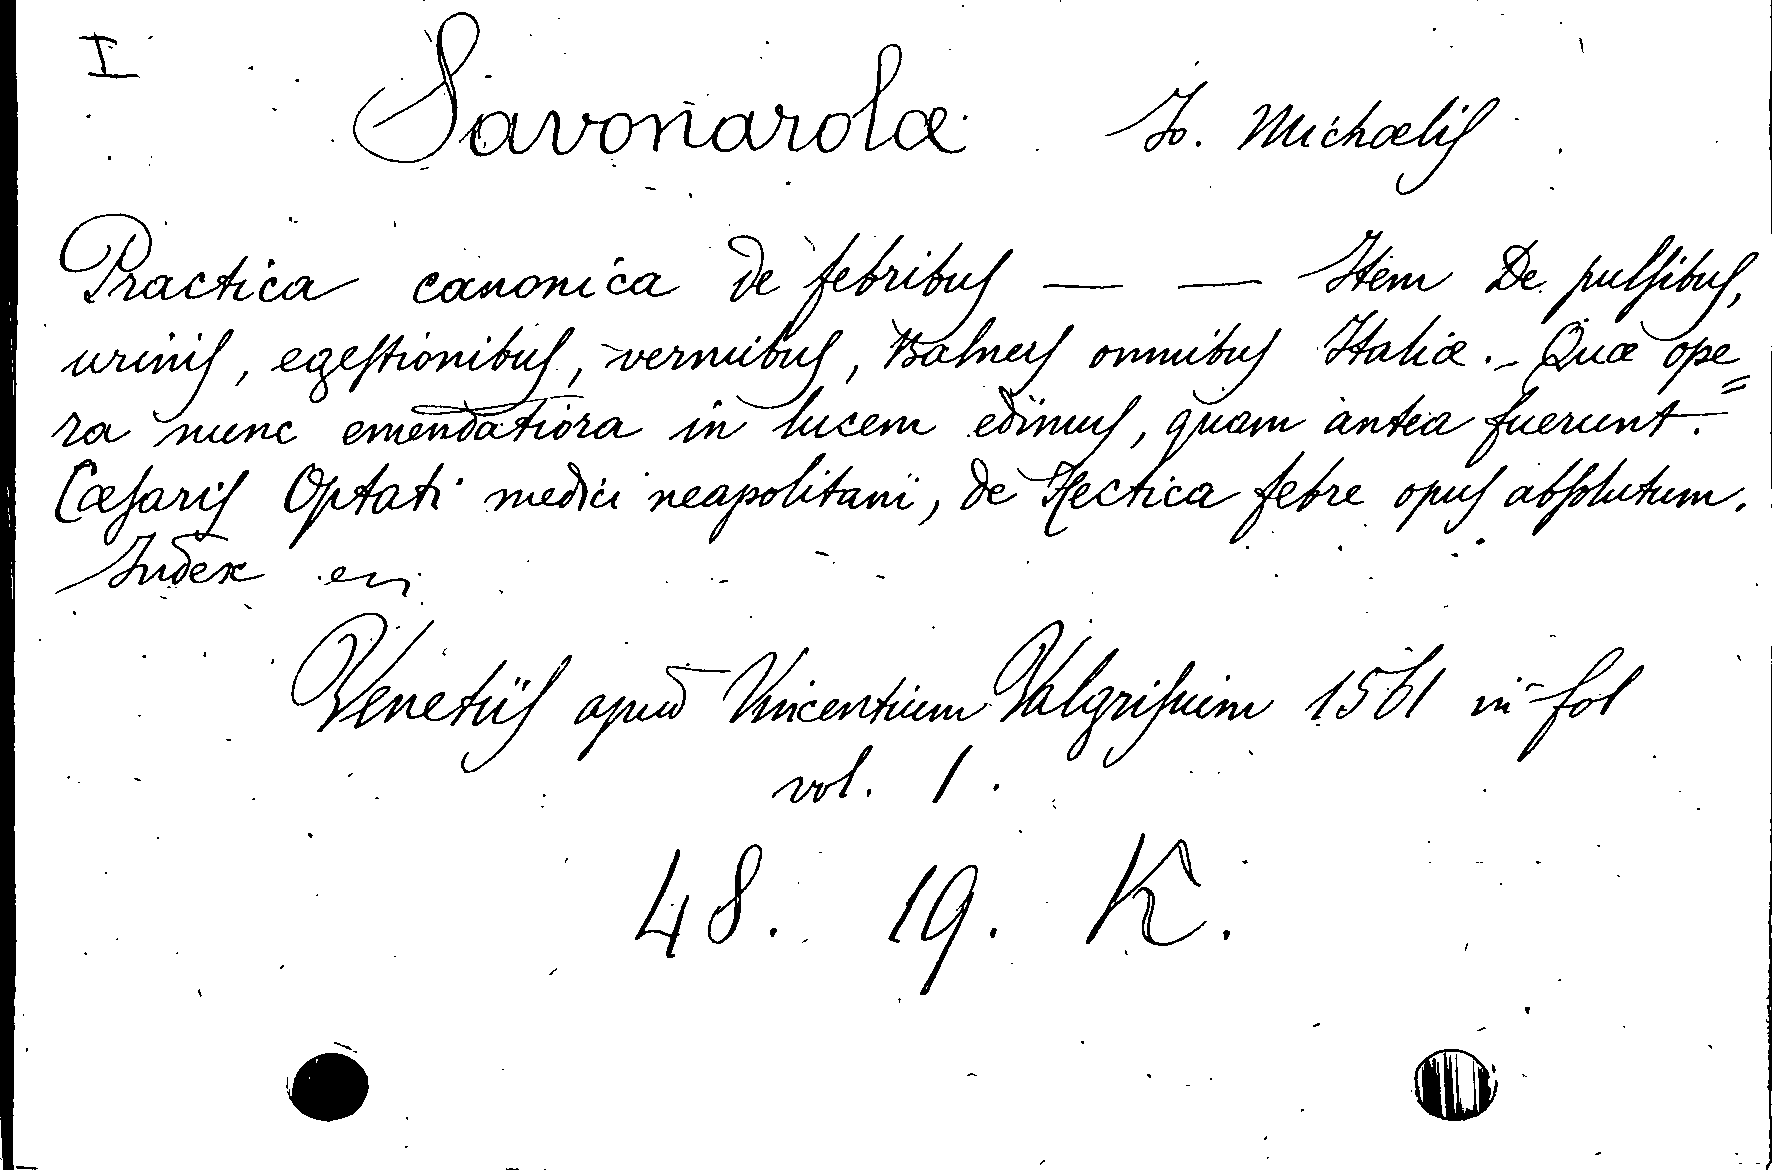 I
Savonarolæ Jo. Michælis
Practica canonica de febribus — — Item De pulsibus,
urinis, egestionibus, vermibus, Balneis omnibus Italiæ. - Quæ ope=
ra nunc emendatiora in lucem edimus, quam antea fuerunt. -
Cæsaris Optati medici neapolitani, de Hectica febre opus absolutum.
Index
Venetiis apud Vincentium Valgrisium 1561 in-fol
vol. 1.
48. 19. K.